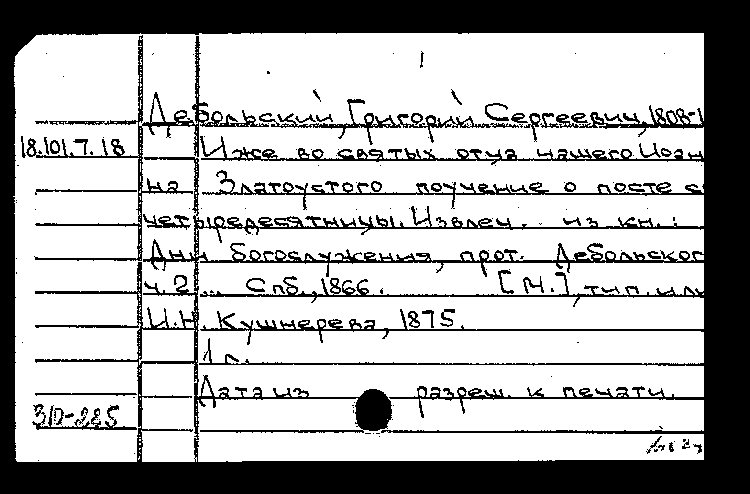 Дебольский, Григорий Сергеевич, 1808-1
18.101.7.18 Иже во святых отца нашего Иоан
на Златоустого поучение о посте с
четыредесятницы. Извлеч. из кн.:
Дни богослужения, прот. Дебольског
ч.2 ... Спб., 1866. [М.], тип. и ли
И.Н. Кушнерева, 1875.
1 л.
Дата из разреш. к печати.
310-285